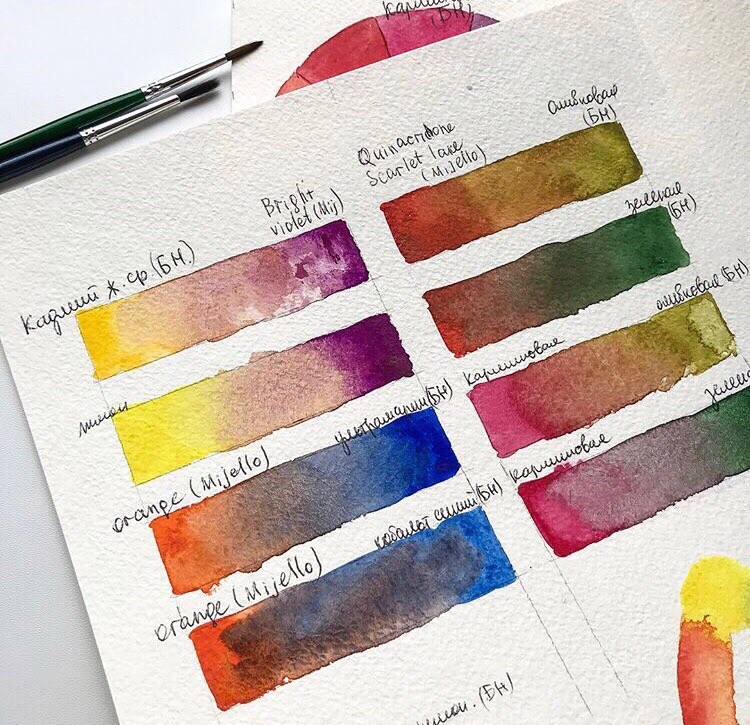 Кармин
(БН)
Quinacridone
Scarlet lake
(Mijello)
Оливковая
(БН)
Bright
violet (Mij)
Кадмий ж.ср.(БН)
зеленая
(БН)
лимон
оливковая (БН)
Карминовая
orange (Mijello)
ультрамарин(БН)
зелен
Карминовая
orange (Mijello)
кобальт синий(БН)
(БН)